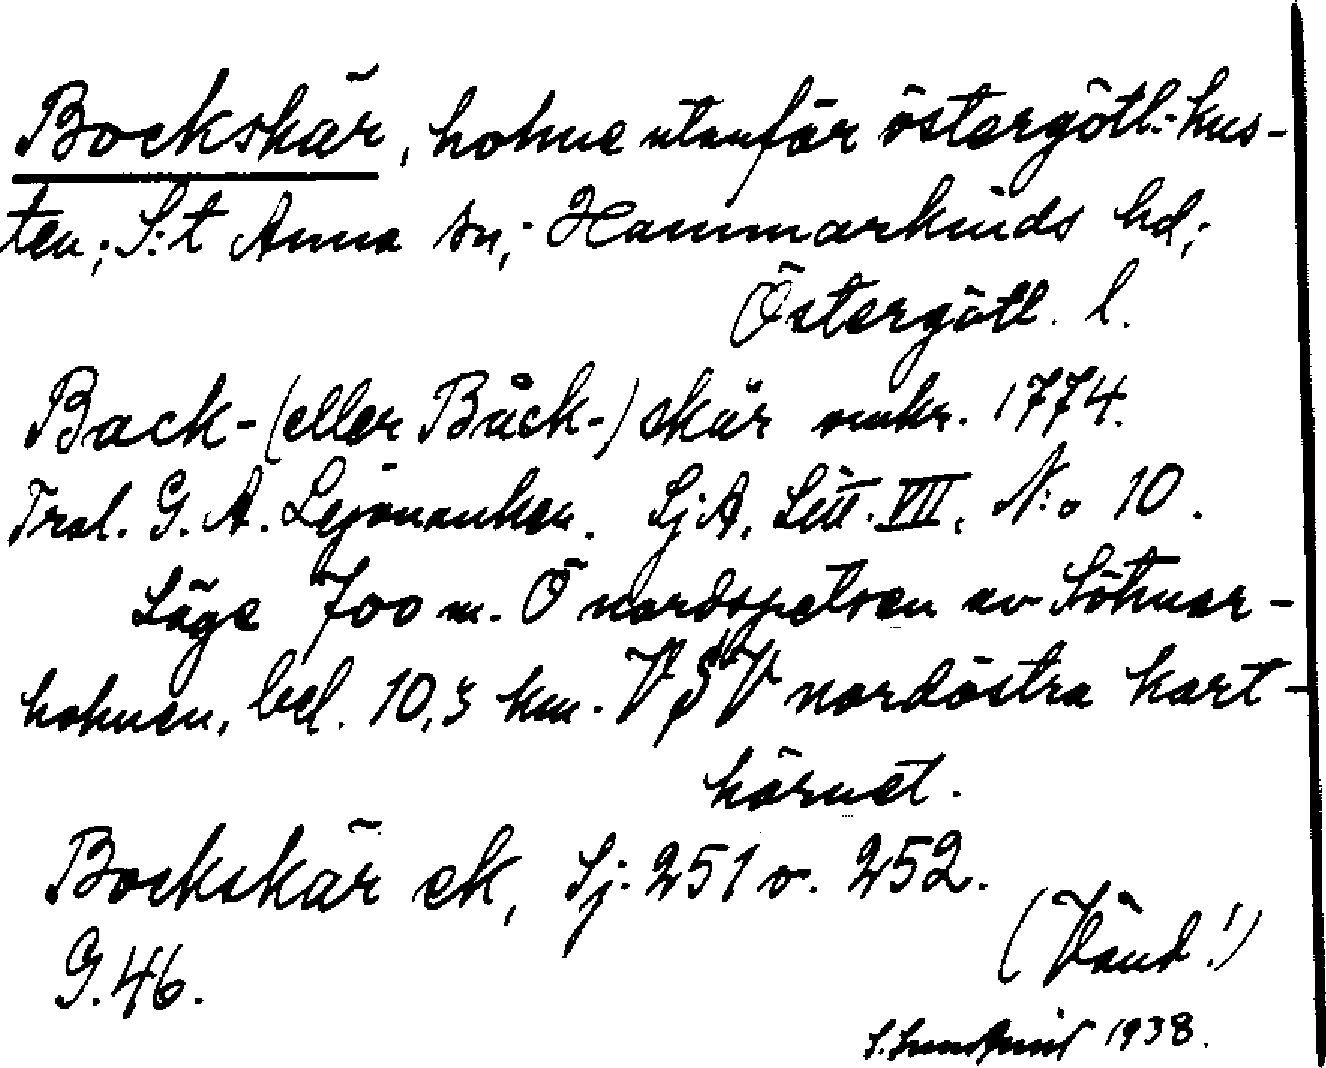 Bockskär, holme utanför östergötl. kus-
ten; S:t Anna sn; Hammarkinds hd;
Östergötl. l.
Back- (eller Båck-) skär omkr. 1774.
Tral. G. A. Lejonanken. Sj.A. Litt. VII. N:o 10.
Läge 700 m. Ö nordspetsen av Lökmar-
holmen, bel. 10,3 km. VSV nordöstra kart-
hörnet.
Bockskär ek, Sj. 251 o. 252.
G. 46.
(Vänd!)
S. Lundkvist 1938.